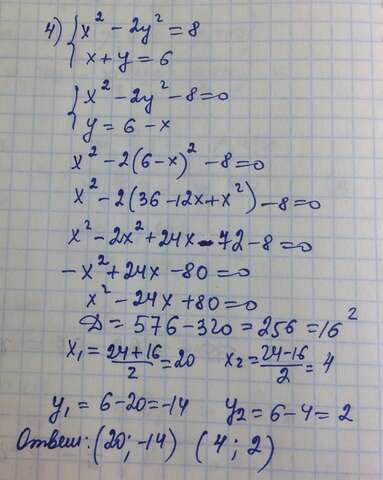 4) { x² - 2y² = 8
x + y = 6
{ x² - 2y² - 8 = 0
y = 6 - x
x² - 2(6-x)² - 8 = 0
x² - 2(36 - 12x + x²) - 8 = 0
x² - 2x² + 24x - 72 - 8 = 0
-x² + 24x - 80 = 0
x² - 24x + 80 = 0
D = 576 - 320 = 256 = 16²
x₁ = (24+16)/2 = 20 x₂ = (24-16)/2 = 4
y₁ = 6 - 20 = -14 y₂ = 6 - 4 = 2
Ответ: (20; -14) (4; 2)